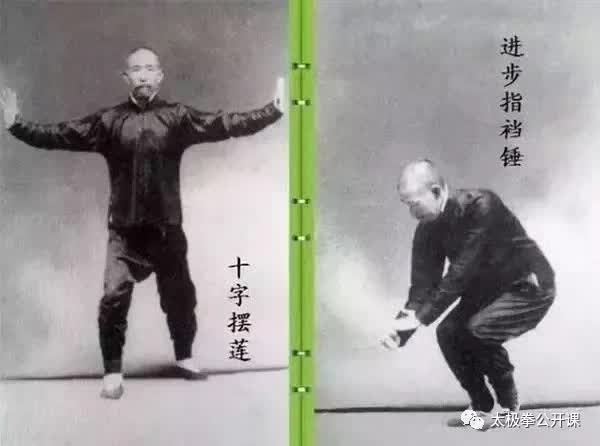 十字摆莲
进步指裆锤
太极拳公开课